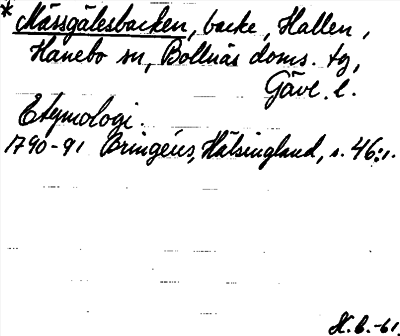 * Mårsgälesbacken, backe, Hallen,
Hanebo sn, Bollnäs doms. tg,
Gävl. l.
Etymologi.
1790-91 Bringéus, Hälsingland, s. 46:1.
H.G.-61.